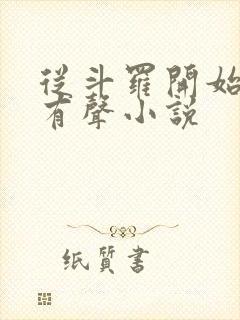 從斗羅開始
有聲小說
纸質書